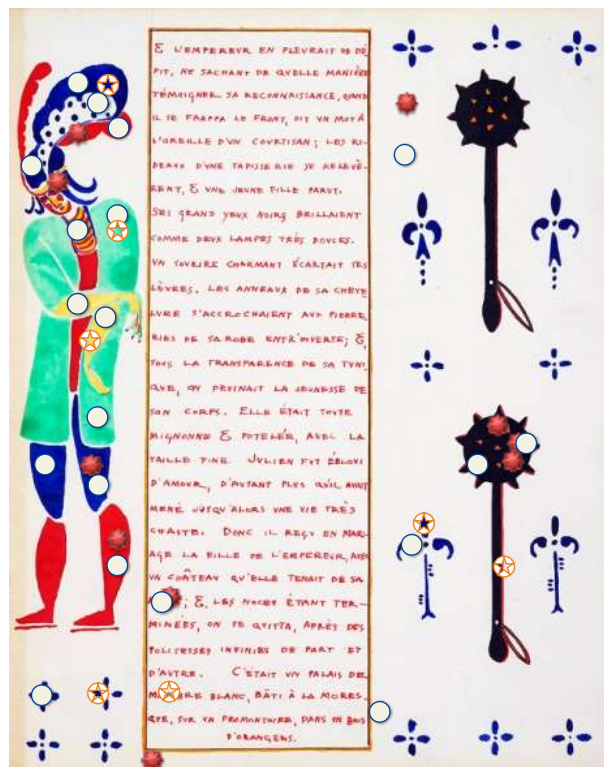 & L'EMPEREUR EN PLEURAIT DE DÉ
PIT, NE SACHANT DE QUELLE MANIÈRE
TÉMOIGNER SA RECONNAISSANCE, QUAND
IL SE FRAPPA LE FRONT, DIT UN MOT À
L'OREILLE D'UN COURTISAN ; LES RI-
DEAUX D'UNE TAPISSERIE SE RELEVÈ-
RENT, & UNE JEUNE FILLE PARUT.
SES GRAND YEUX NOIRS BRILLAIENT
COMME DEUX LAMPES TRÈS DOUCES.
UN SOURIRE CHARMANT ÉCARTAIT SES
LÈVRES. LES ANNEAUX DE SA CHEVE
LURE S'ACCROCHAIENT AUX PIERRE
RIES DE SA ROBE ENTR'OUVERTE ; &,
SOUS LA TRANSPARENCE DE SA TUNI-
QUE, ON DEVINAIT LA JEUNESSE DE
SON CORPS. ELLE ÉTAIT TOUTE
MIGNONNE & POTELÉE, AVEC LA
TAILLE FINE. JULIEN FUT ÉBLOUI
D'AMOUR, D'AUTANT PLUS QU'IL AVAIT
MENÉ JUSQU'ALORS UNE VIE TRÈS
CHASTE. DONC IL REÇU EN MAR-
AGE LA FILLE DE L'EMPEREUR, AVEC
UN CHÂTEAU QU'ELLE TENAIT DE SA
; &, LES NOCES ÉTANT TER-
MINÉES, ON SE QUITTA, APRÈS DES
POLITESSES INFINIES DE PART ET
D'AUTRE. C'ÉTAIT UN PALAIS DE
BLANC, BÂTI À LA MORES-
QUE, SUR UN PROMONTOIRE, DANS UN BOIS
D'ORANGERS.